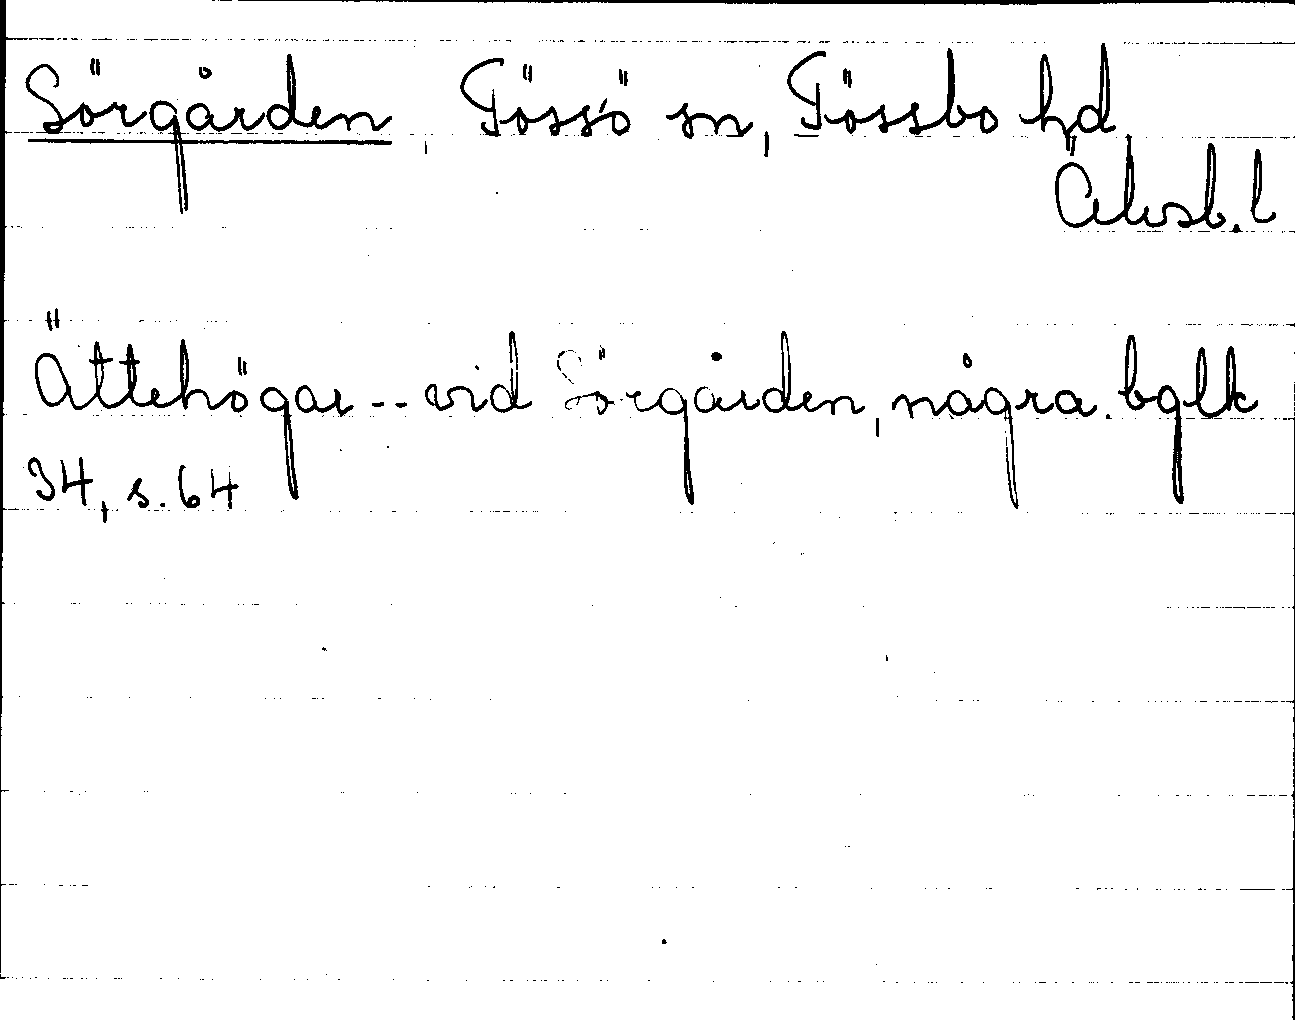 Sörgården, Tössö sn, Tössbo hd,
Älvsb. l
Ättehögar -- vid Sörgården, några. bglk
34, s. 64